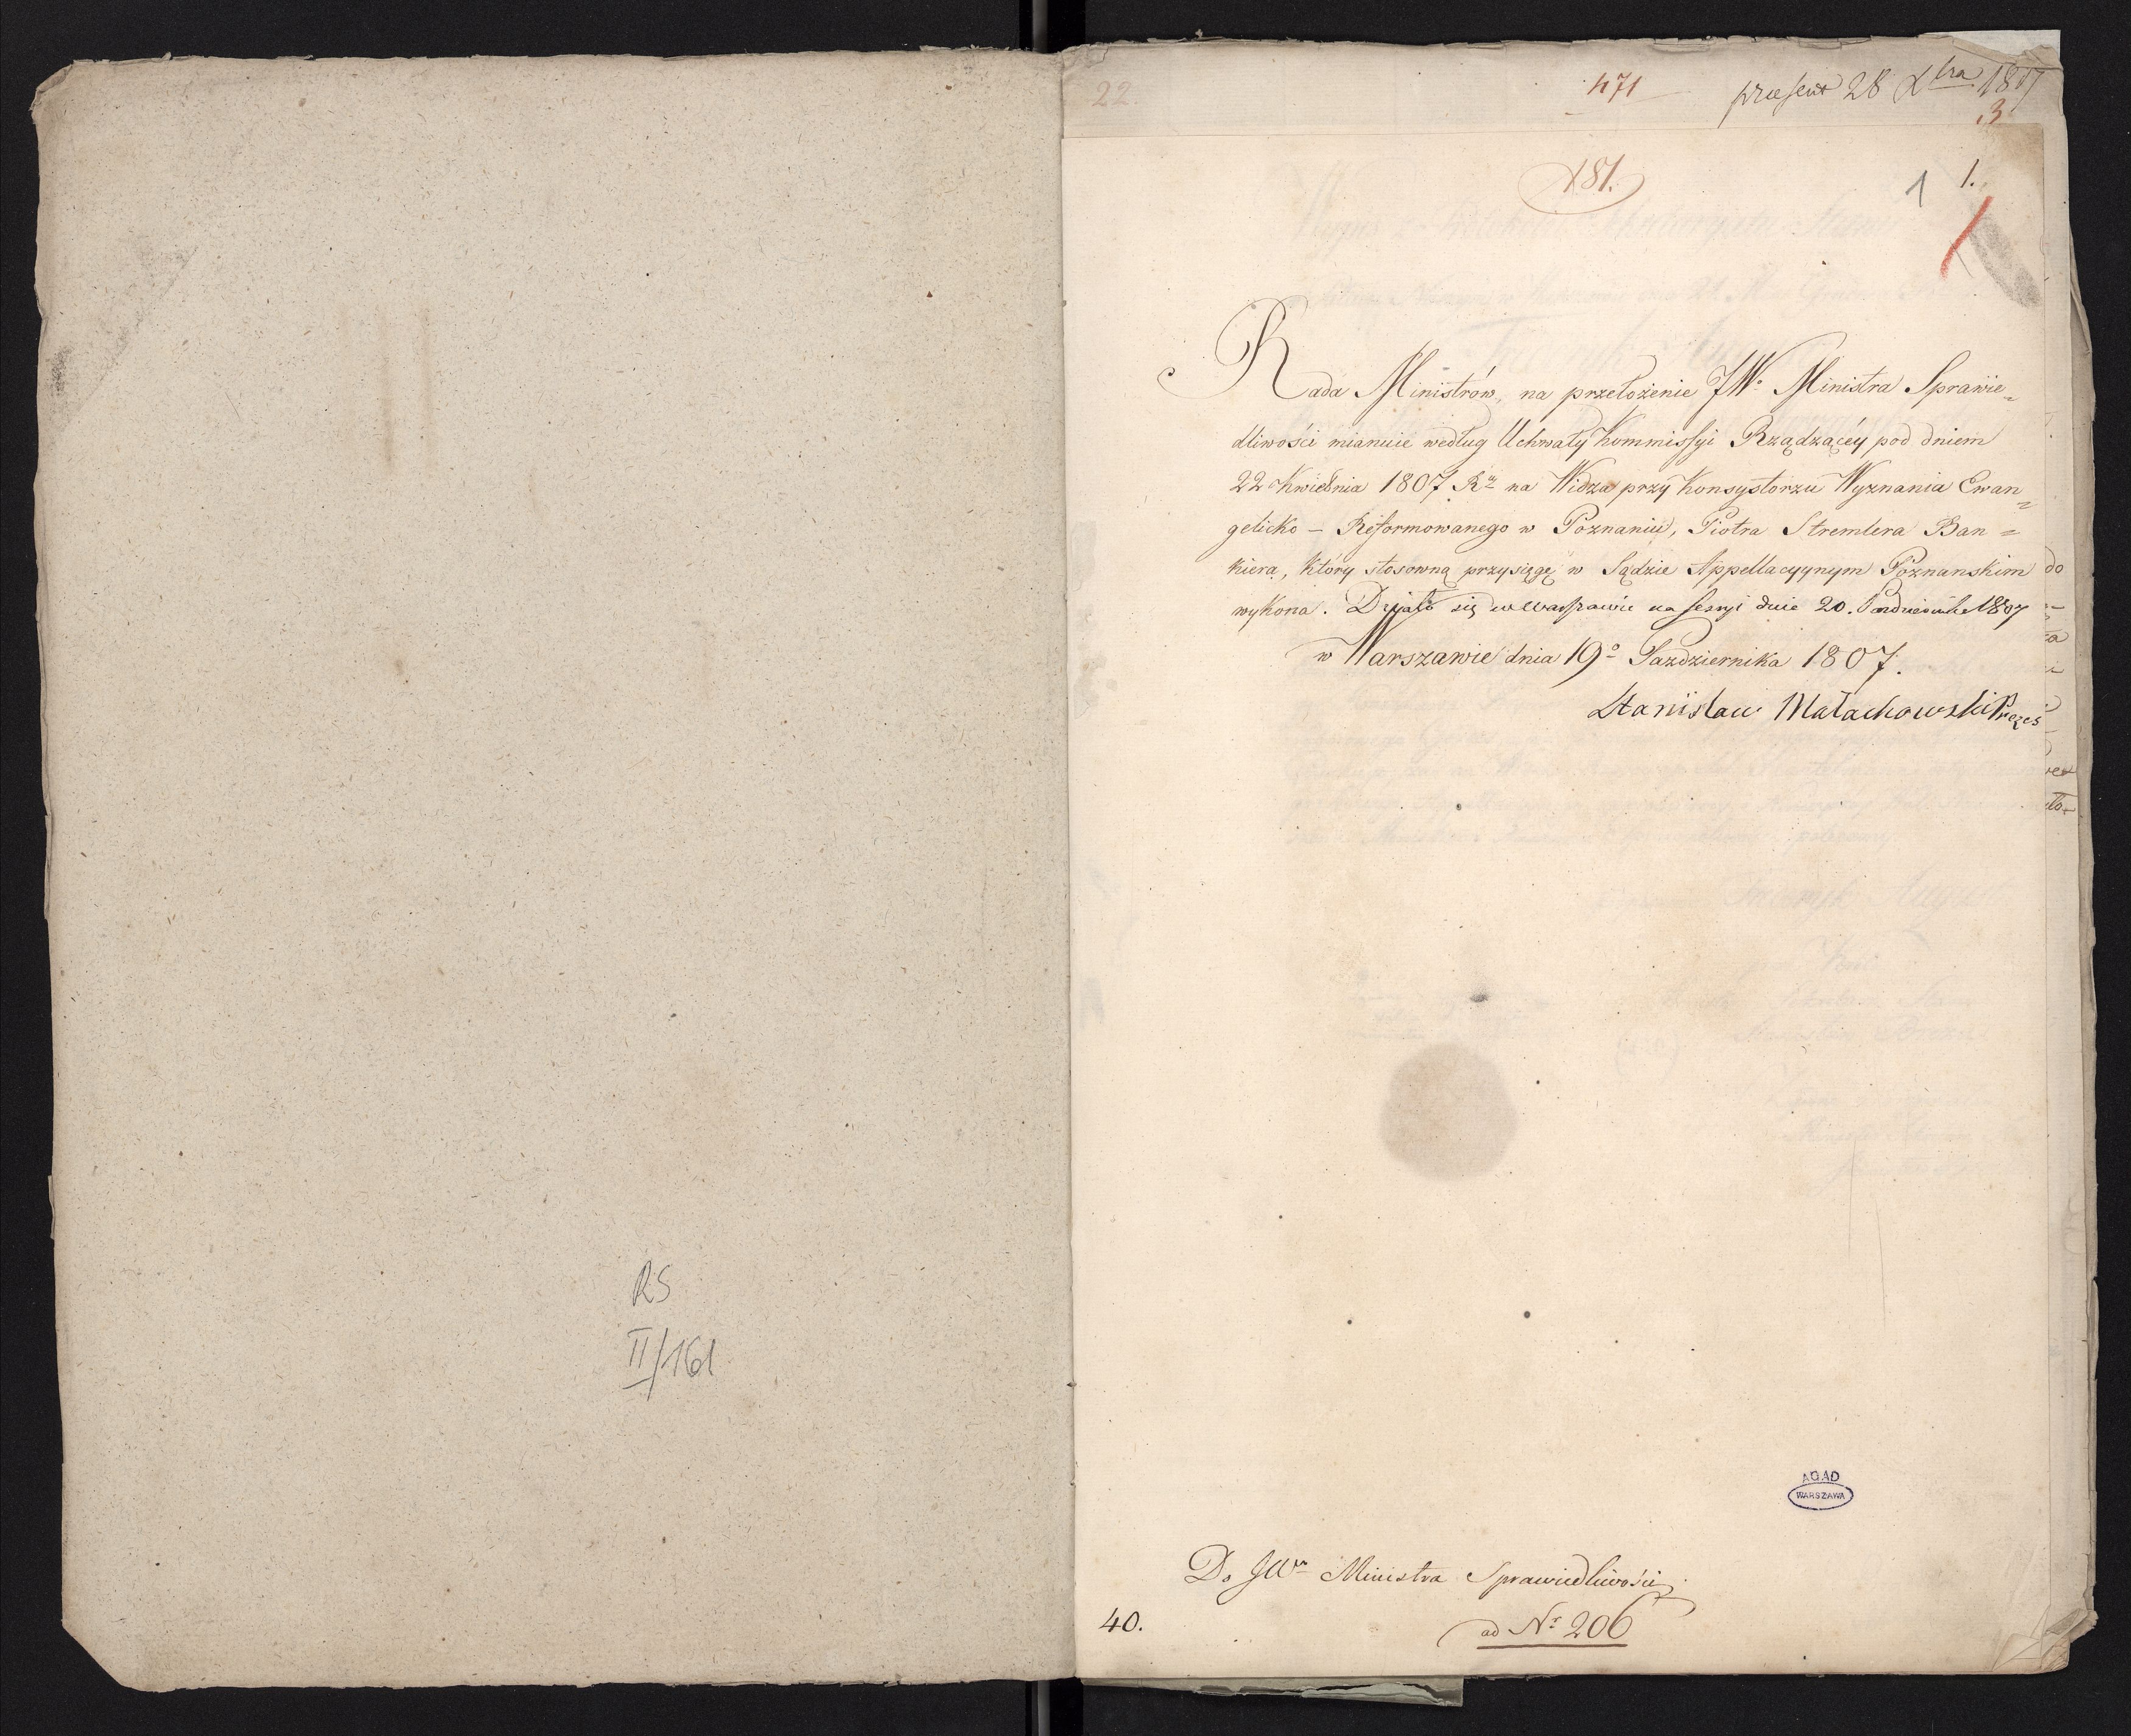 RS
II/161
22
471
praesent 28 Xbra 1807
3
181.
1
1.
Rada Ministrów, na przełożenie JWo Ministra Sprawie„
dliwości mianuie według Uchwały Kommissyi Rządzącéy pod dniem
22 Kwietnia 1807 Ru na Widza przy Konsystorzu Wyznania Ewan„
gelicko – Reformowanego w Poznaniu, Piotra Stremlera Ban =
kiera, który stosowną przysięgę w Sądzie Appellacyynym Poznanskim
wykona. Działo się w Warszawie na Sessyi dnia 20. Pazdziernika 1807
w Warszawie dnia 19o Pazdziernika 1807.
Stanisław Małachowski Prezes
AGAD
WARSZAWA
Do JWo Ministra Sprawiedliwości
40.
ad Nr 206